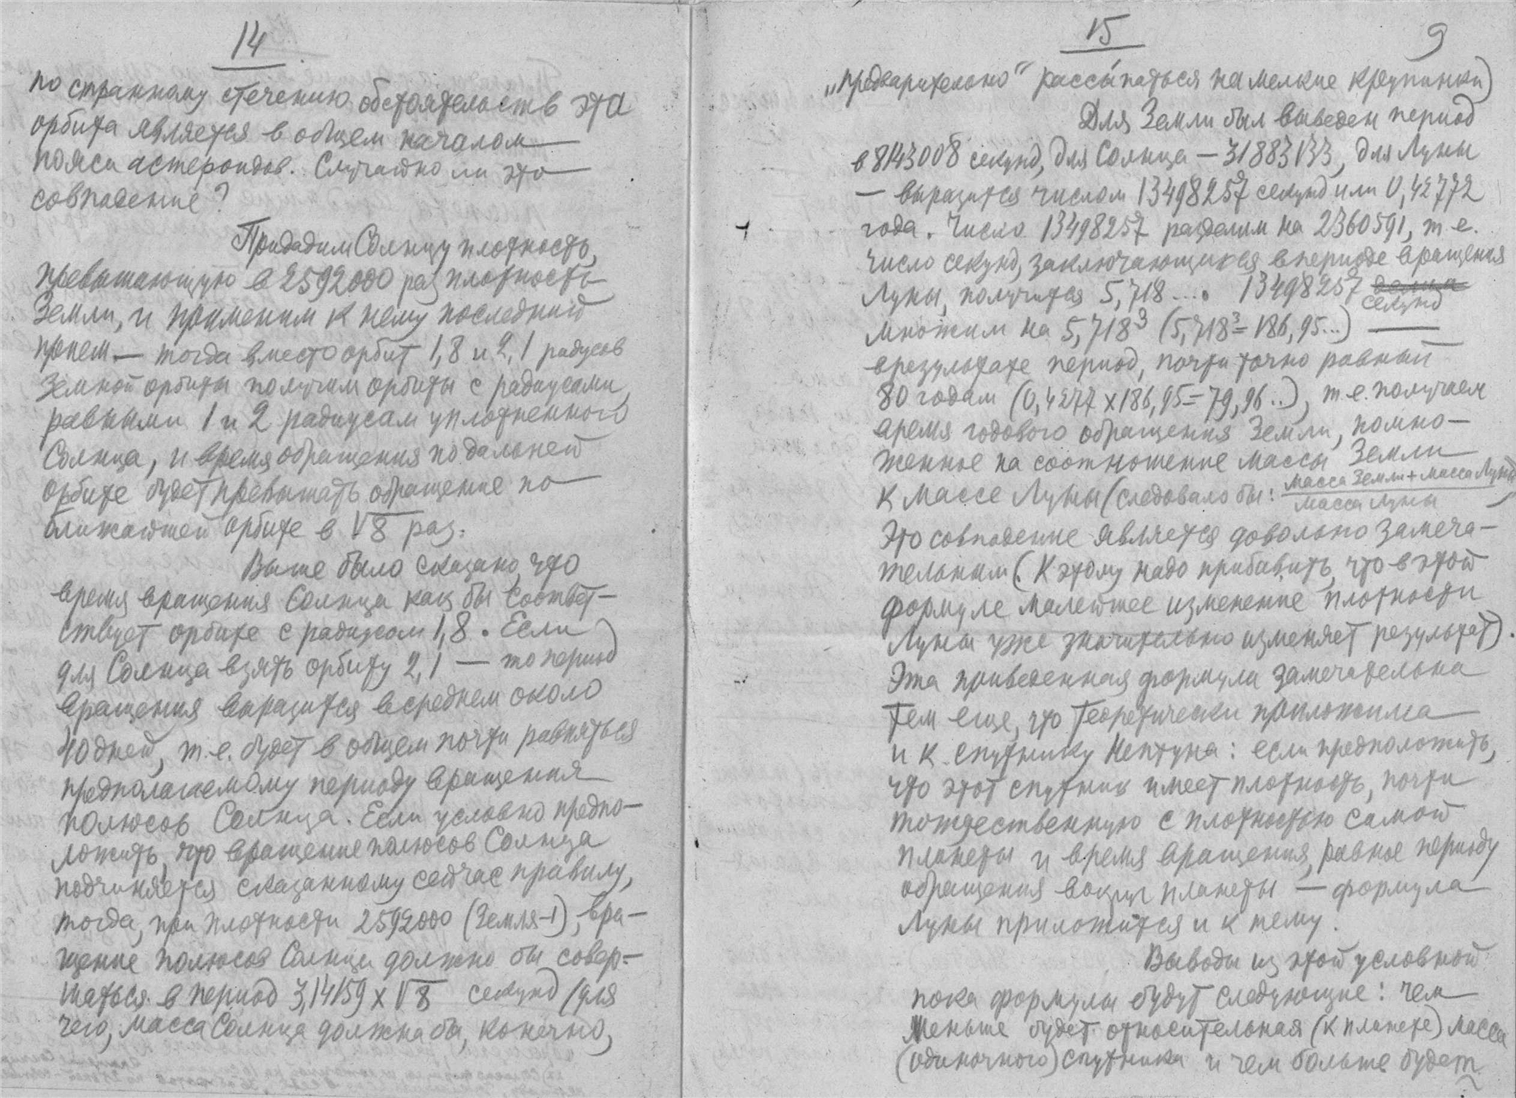 14
по странному стечению обстоятельств эта
орбита является в общем началом
пояса астероидов. Случайно ли это
совпадение?
Придадим Солнцу плотность,
превышающую в 2592000 раз плотность
Земли, и применим к нему последний
прием — тогда вместо орбит 1,8 и 2,1 радиусов
земной орбиты получим орбиты с радиусами,
равными 1 и 2 радиусам уплотненного
Солнца, и время обращения по дальней
орбите будет превышать обращение по
ближайшей орбите в √8 раз.
Выше было сказано, что
время вращения Солнца как бы соответ-
ствует орбите с радиусом 1,8. Если
для Солнца взять орбиту 2,1 — то период
вращения выразится в среднем около
40 дней, т.е. будет в общем почти равняться
предполагаемому периоду вращения
полюсов Солнца. Если условно предпо-
ложить, что вращение полюсов Солнца
подчиняется сказанному сейчас правилу,
тогда, при плотности 2592000 (Земля-1), вра-
щение полюсов Солнца должно бы совер-
шаться в период 3,14159 x √8 секунд (для
чего, масса Солнца должна бы, конечно,
15
9
„предварительно“ рассыпаться на мелкие крупинки)
Для Земли был выведен период
в 8143008 секунд, для Солнца — 31883133, для Луны
— выразится числом 13498257 секунд или 0,42772
года. Число 13498257 разделим на 2360591, т.е.
число секунд, заключающихся в периоде вращения
Луны, получится 5,718.... 13498257
секунд
множим на 5,718³ (5,718³=186,95...) —
в результате период, почти точно равный
80 годам (0,4277 x 186,95=79,96..), т.е. получаем
время годового обращения Земли, помно-
женное на соотношение массы Земли
к массе Луны (следовало бы: масса Земли + масса Луны
масса Луны )
Это совпадение является довольно замеча-
тельным (К этому надо прибавить, что в этой
формуле малейшее изменение плотности
Луны уже значительно изменяет результат).
Эта приведенная формула замечательна
тем еще, что теоретически приложима
и к спутнику Нептуна: если предположить,
что этот спутник имеет плотность, почти
тождественную с плотностью самой
планеты и время вращения, равное периоду
обращения вокруг планеты — формула
Луны приложится и к нему.
Выводы из этой условной
пока формулы будут следующие: чем
меньше будет относительная (к планете) масса
(одиночного) спутника и чем больше будет